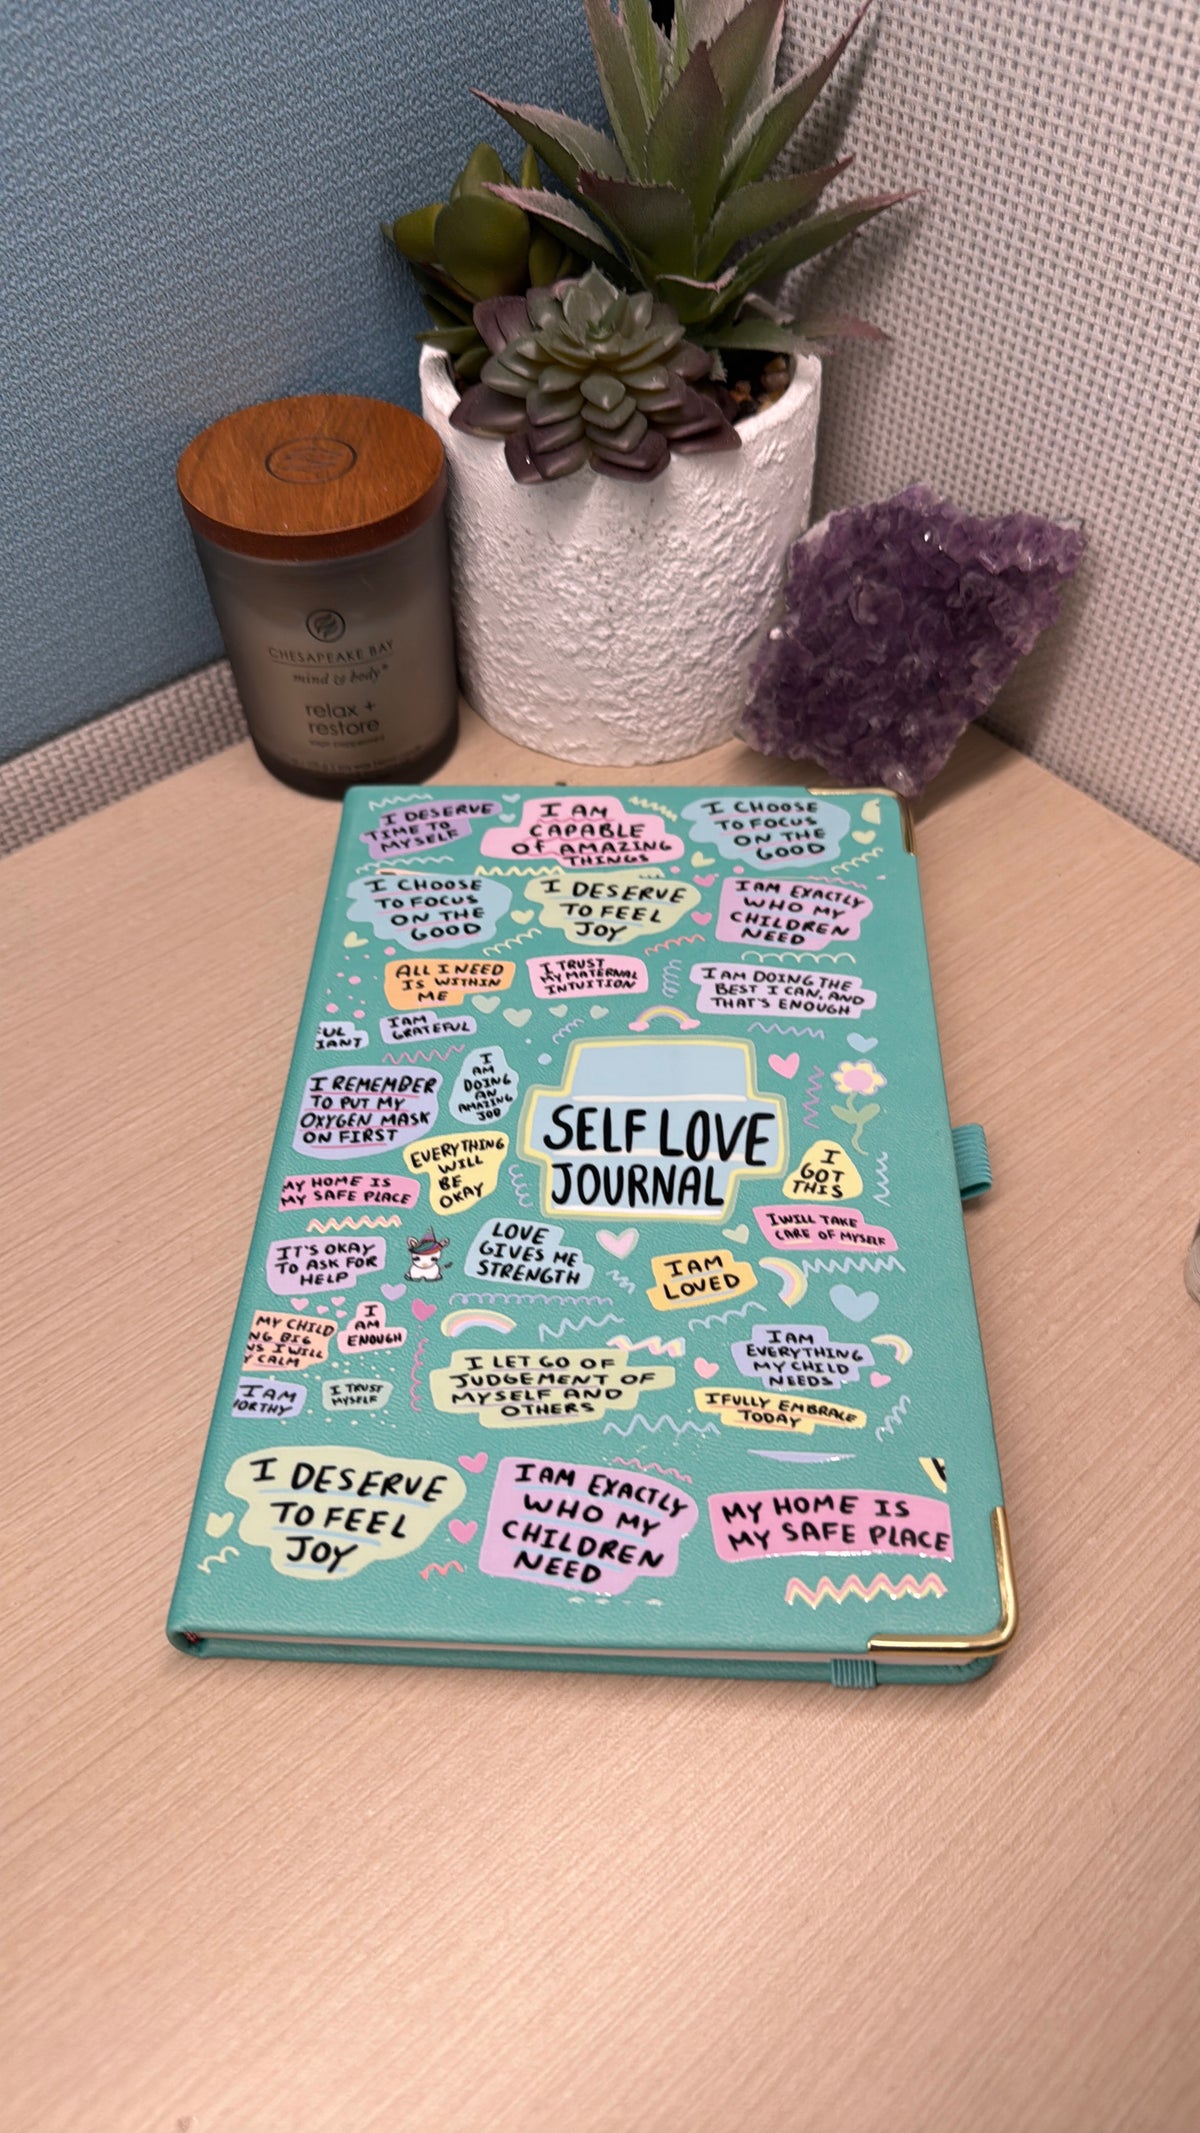 CHESAPEAKE BAY
mind & body
relax +
restore
I DESERVE
TIME TO
MYSELF
I AM
CAPABLE
OF AMAZING
THINGS
I CHOOSE
TO FOCUS
ON THE
GOOD
I CHOOSE
TO FOCUS
ON THE
GOOD
I DESERVE
TO FEEL
JOY
I AM EXACTLY
WHO MY
CHILDREN
NEED
ALL I NEED
IS WITHIN
ME
I TRUST
MY MATERNAL
INTUITION
I AM DOING THE
BEST I CAN, AND
THAT'S ENOUGH
UL
IANT
I AM
GRATEFUL
I REMEMBER
TO PUT MY
OXYGEN MASK
ON FIRST
I
AM
DOING
AN
AMAZING
JOB
SELF LOVE
JOURNAL
EVERYTHING
WILL
BE
OKAY
I
GOT
THIS
MY HOME IS
MY SAFE PLACE
I WILL TAKE
CARE OF MYSELF
IT'S OKAY
TO ASK FOR
HELP
LOVE
GIVES ME
STRENGTH
I AM
LOVED
MY CHILD
NG BIG
NS I WILL
Y CALM
I
AM
ENOUGH
I AM
EVERYTHING
MY CHILD
NEEDS
I LET GO OF
JUDGEMENT OF
MYSELF AND
OTHERS
I AM
ORTHY
I TRUST
MYSELF
I FULLY EMBRACE
TODAY
I DESERVE
TO FEEL
JOY
I AM EXACTLY
WHO MY
CHILDREN
NEED
MY HOME IS
MY SAFE PLACE